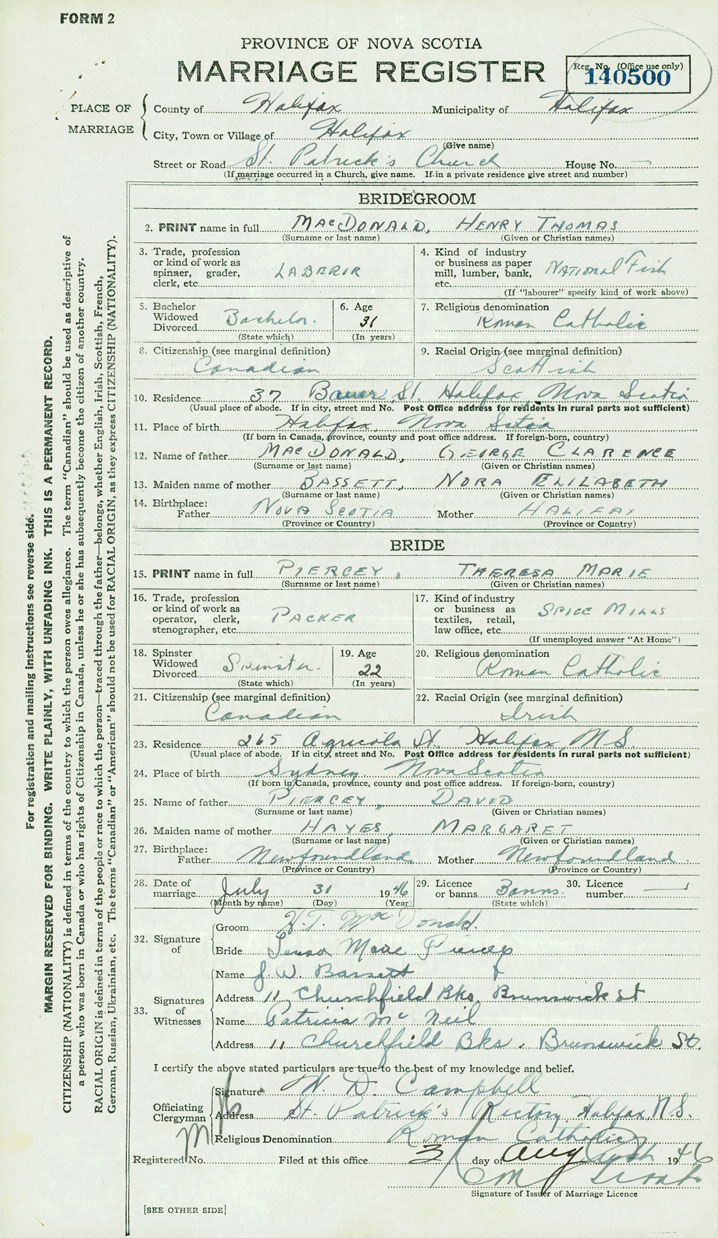 FORM 2
PROVINCE OF NOVA SCOTIA
MARRIAGE REGISTER
Reg. No. (Office use only)
140500
PLACE OF MARRIAGE
County of Halifax Municipality of Halifax
City, Town or Village of Halifax
(Give name)
Street or Road St. Patrick's Church House No. —
(If marriage occurred in a Church, give name. If in a private residence give street and number)
BRIDEGROOM
2. PRINT name in full MACDONALD, HENRY THOMAS
(Surname or last name) (Given or Christian names)
3. Trade, profession or kind of work as spinner, grader, clerk, etc. LABERIR
4. Kind of industry or business as paper mill, lumber, bank, etc. NATIONAL Fish
(If "labourer" specify kind of work above)
5. Bachelor Widowed Divorced Bachelor.
(State which)
6. Age 31
(In years)
7. Religious denomination Roman Catholic
8. Citizenship (see marginal definition) Canadian
9. Racial Origin (see marginal definition) Scottish
10. Residence 37 Bauer St. Halifax, Nova Scotia
(Usual place of abode. If in city, street and No. Post Office address for residents in rural parts not sufficient)
11. Place of birth Halifax Nova Sotia
(If born in Canada, province, county and post office address. If foreign-born, country)
12. Name of father MACDONALD, GEORGE CLARENCE
(Surname or last name) (Given or Christian names)
13. Maiden name of mother BASSETT, NORA ELIZABETH
(Surname or last name) (Given or Christian names)
14. Birthplace: Father NOVA SCOTIA Mother HALIFAX
(Province or Country) (Province or Country)
BRIDE
15. PRINT name in full PIERCEY, THERESA MARIE
(Surname or last name) (Given or Christian names)
16. Trade, profession or kind of work as operator, clerk, stenographer, etc. PACKER
17. Kind of industry or business as textiles, retail, law office, etc. SPICE MILLS
(If unemployed answer "At Home")
18. Spinster Widowed Divorced Spinster.
(State which)
19. Age 22
(In years)
20. Religious denomination Roman Catholic
21. Citizenship (see marginal definition) Canadian
22. Racial Origin (see marginal definition) Irish
23. Residence 265 Agricola St. Halifax, N.S.
(Usual place of abode. If in city, street and No. Post Office address for residents in rural parts not sufficient)
24. Place of birth Sydney Nova Scotia
(If born in Canada, province, county and post office address. If foreign-born, country)
25. Name of father PIERCEY, DAVID
(Surname or last name) (Given or Christian names)
26. Maiden name of mother HAYES, MARGARET
(Surname or last name) (Given or Christian names)
27. Birthplace: Father Newfoundland Mother Newfoundland
(Province or Country) (Province or Country)
28. Date of marriage July 31 1946
(Month by name) (Day) (Year)
29. Licence or banns Banns.
(State which)
30. Licence number —
32. Signature of
Groom H.T. McDonald.
Bride Marie Piercey
33. Signatures of Witnesses
Name J. W. Bassett
Address 11, Churchfield Bks, Brunswick St
Name Patricia Mc Neil
Address 11 Churchfield Bks. Brunswick St.
I certify the above stated particulars are true to the best of my knowledge and belief.
Officiating Clergyman
Signature W. D. Campbell
Address St. Patrick's Rectory, Halifax, N.S.
Religious Denomination Roman Catholic
Registered No. Filed at this office day of Aug 1946
Signature of Issuer of Marriage Licence
[SEE OTHER SIDE]
For registration and mailing instructions see reverse side.
MARGIN RESERVED FOR BINDING. WRITE PLAINLY, WITH UNFADING INK. THIS IS A PERMANENT RECORD.
CITIZENSHIP (NATIONALITY) is defined in terms of the country to which the person owes allegiance. The term "Canadian" should be used as descriptive of
a person who was born in Canada or who has rights of Citizenship in Canada, unless he or she has subsequently become the citizen of another country.
RACIAL ORIGIN is defined in terms of the people or race to which the person—traced through the father—belongs, whether English, Irish, Scottish, French,
German, Russian, Ukrainian, etc. The terms "Canadian" or "American" should not be used for RACIAL ORIGIN, as they express CITIZENSHIP (NATIONALITY).